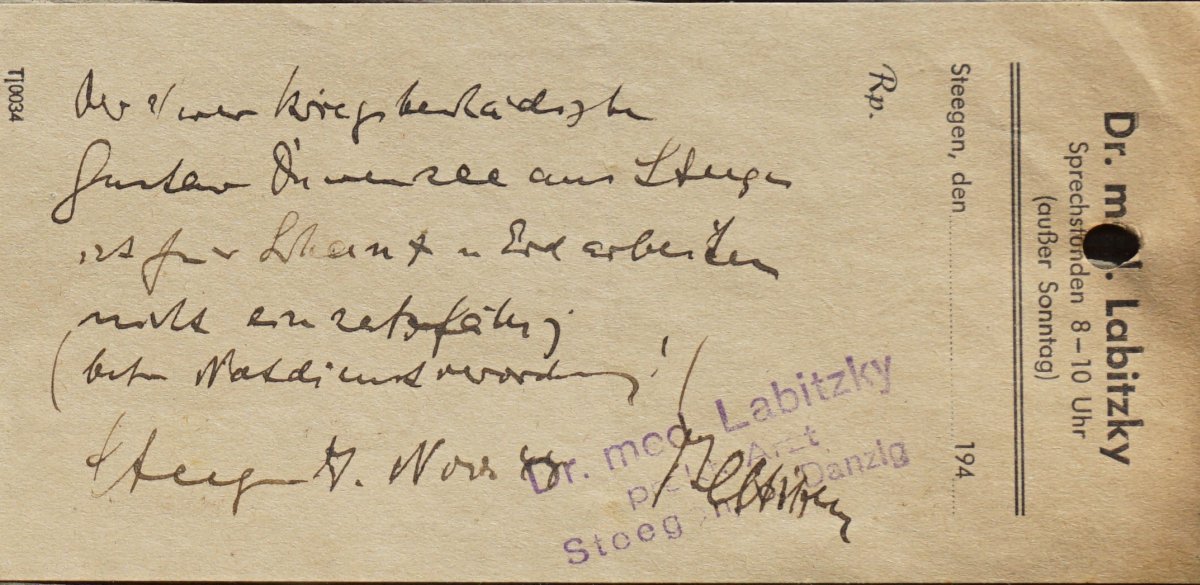 Dr. med. Labitzky
Sprechstunden 8–10 Uhr
(außer Sonntag)
Steegen, den 194
Rp.
Der Kriegsbeschädigte
Gustav aus Steegen
ist für Schanz u Erdarbeiten
nicht einsatzfähig
(betr. Notdienstverordnung!)
Steegen Nov.
Dr. med. Labitzky
Arzt
Steeg Danzig
Tj0034